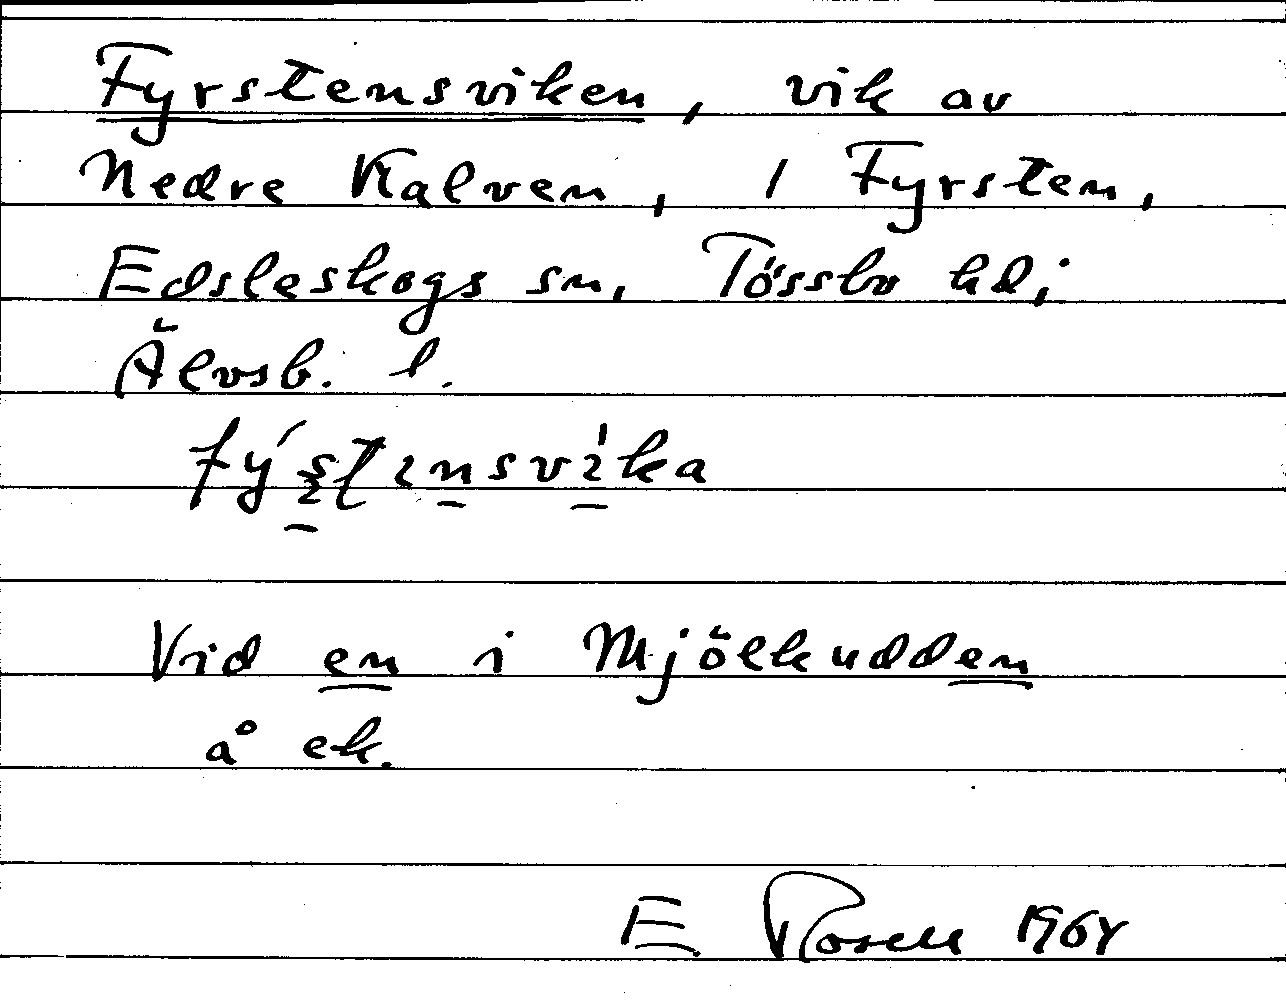 Fyrstensviken, vik av
Nedre Kalven, i Fyrsten,
Edsleskogs sn, Tössbo hd;
Älvsb. l.
Vid en i Mjölkudden
å ek.
E Rosell 1964